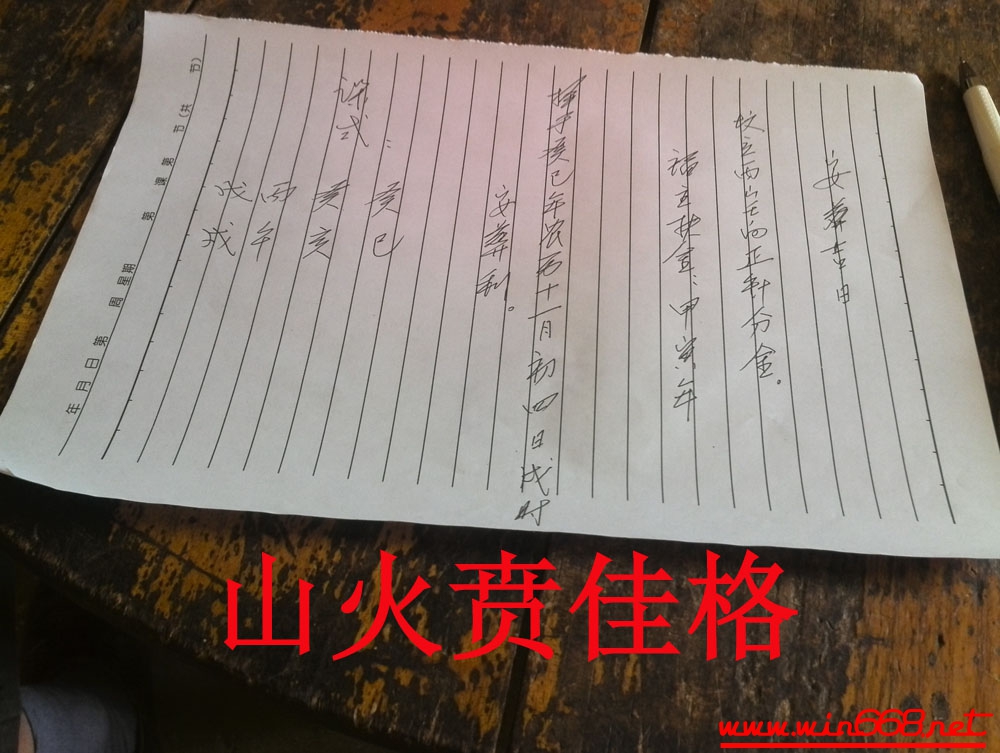 安葬吉日
坟立丙山壬向正针分金。
福主 甲寅年
择于癸巳年农历十一月初四日戌时
安葬利。
课式：
癸巳
癸亥
丙午
戊戌
年 月 日 第 周 星期 第 课 第 节(共 节)
山火贲佳格
www.win668.net